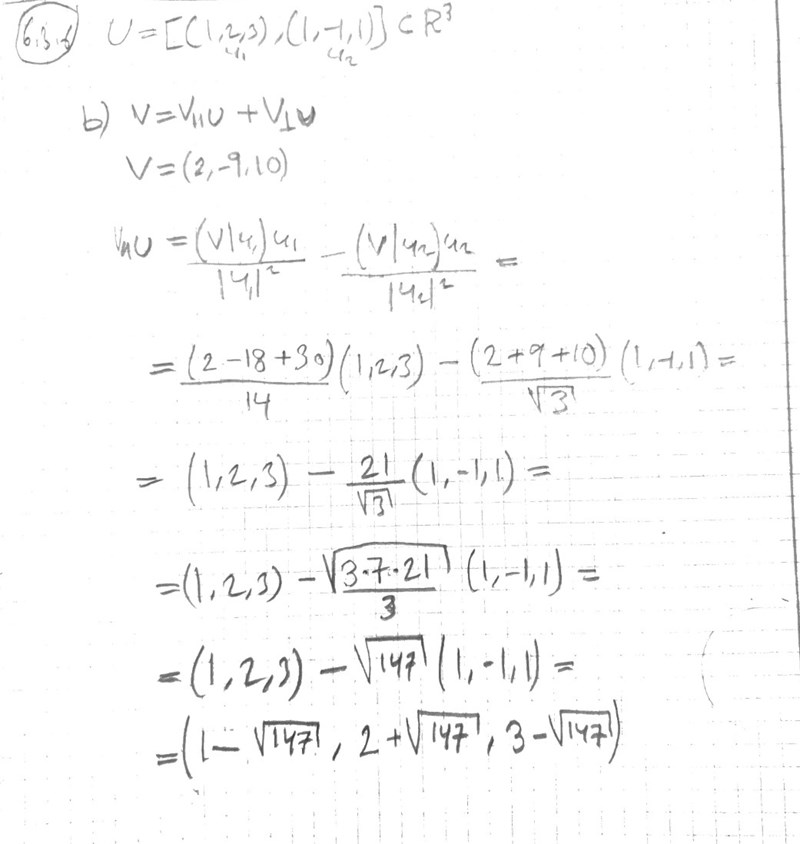 6.3.6 U = [(1,2,3), (1,-1,1)] ⊂ R³
u₁ u₂
b) V = V∥U + V⊥U
V = (2,-9,10)
V∥U = (V|u₁)u₁/|u₁|² - (V|u₂)u₂/|u₂|² =
= (2-18+30)/14 (1,2,3) - (2+9+10)/√3 (1,-1,1) =
= (1,2,3) - 21/√3 (1,-1,1) =
= (1,2,3) - √(3·7·21/3) (1,-1,1) =
= (1,2,3) - √147 (1,-1,1) =
= (1-√147, 2+√147, 3-√147)